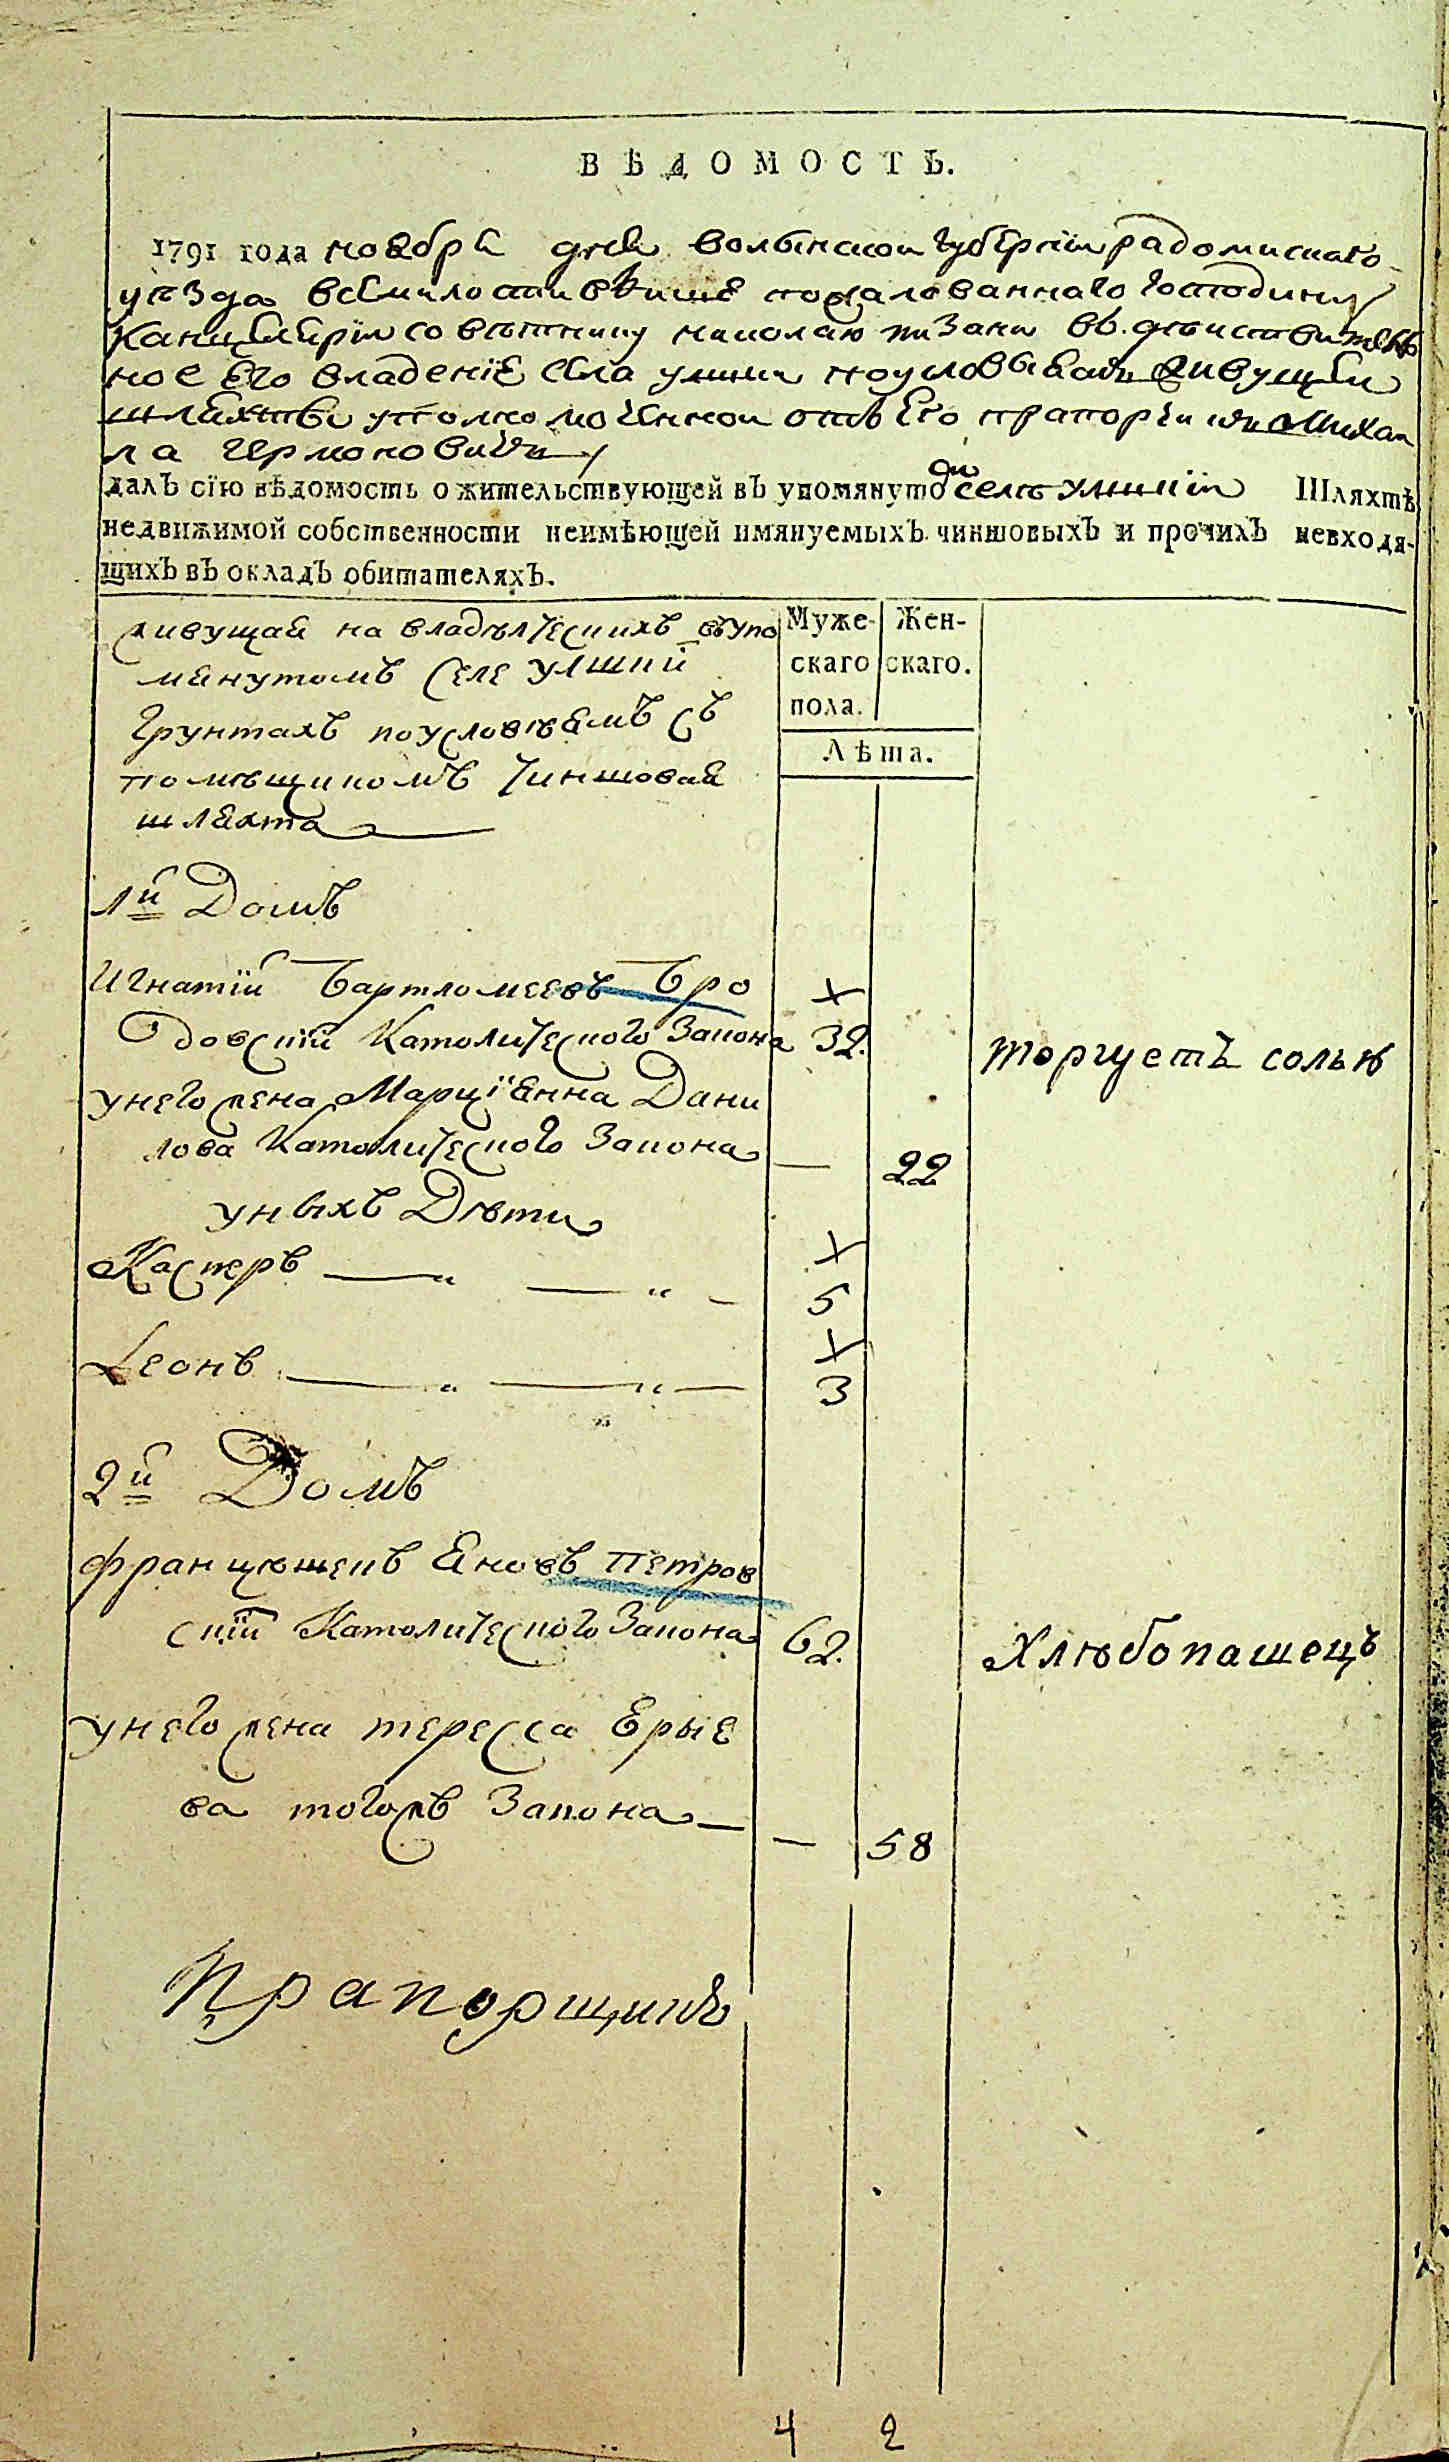 ВѢДОМОСТЬ.
1791 года ноября дня волынской губернїи радомискаго
уѣзда всемилостивѣише пожалованнаго господину
канцелярїи советнику николаю пизани въ действитель
ное Его владенїе села улшки поусловыямъ живущей
шляхтѣ уполномоченной отъ Его прапорщика Михаи
ла Чермоновича
далъ сїю вѣдомость о жительствующей въ упомянутомъ селѣ Улшкїи Шляхтѣ
недвижимой собственности неимѣющей имянуемыхъ чиншовыхъ и прочихъ невходя-
щихъ въ окладъ обитателяхъ.
живущая на владѣлческихъ въупо
мянутомъ селе улшкїи
грунтахъ поусловѣямъ съ
помѣщикомъ чиншовая
шляхта
Муже-
скаго
пола.
Жен-
скаго.
Лѣта.
1й Домъ
Игнатїй Бартломеевъ Бро
довскїй Католического Закона 32. торгуетъ солью
унего жена Марцїянна Дани
лова Католического Закона — 22
уныхъ Дѣти
Касперъ — " — " — 5
Леонъ — " — " — 3
2й Домъ
францѣшекъ Яновъ Петров
скїй Католического Закона 62. Хлѣбопашецъ
унего жена тересса Ерые
ва тогожъ Закона — — 58
Прапорщикъ
4 2